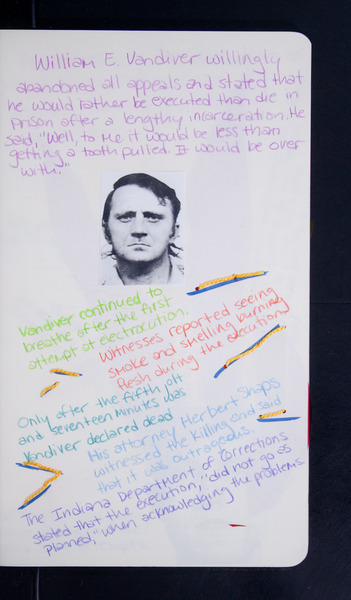 William E. Vandiver willingly
abandoned all appeals and stated that
he would rather be executed than die in
prison after a lengthy incarceration. He
said, "Well, to me it would be less than
getting a tooth pulled. It would be over
with."
Vandiver continued to
breathe after the first
attempt at electrocution.
Witnesses reported seeing
smoke and smelling burning
flesh during the execution.
Only after the fifth jolt
and seventeen minutes was
Vandiver declared dead
His attorney Herbert Shaps
witnessed the killing and said
that it was outrageous.
The Indiana Department of Corrections
stated that the execution, "did not go as
planned," when acknowledging the problems.